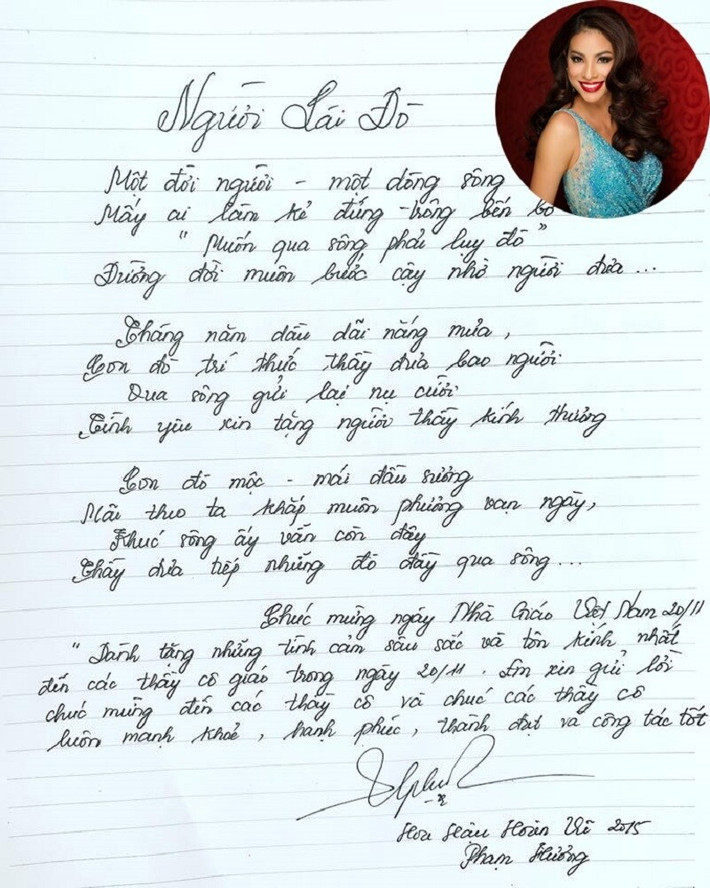 Người Lái Đò
Một đời người - một dòng sông
Mấy ai làm kẻ đứng trông bến bờ
"Muốn qua sông phải lụy đò"
Đường đời muôn bước cậy nhờ người đưa...
Tháng năm dầu dãi nắng mưa,
Con đò trí thức thầy đưa bao người
Qua sông gửi lại nụ cười
Tình yêu xin tặng người thầy kính thương
Con đò mộc - mái đầu sương
Mãi theo ta khắp muôn phương vạn ngày,
Khúc sông ấy vẫn còn đây
Thầy đưa tiếp những đò đầy qua sông...
Chúc mừng ngày Nhà Giáo Việt Nam 20/11
"Dành tặng những tình cảm sâu sắc và tôn kính nhất
đến các thầy cô giáo trong ngày 20/11. Em xin gửi lời
chúc mừng đến các thầy cô và chúc các thầy cô
luôn mạnh khoẻ, hạnh phúc, thành đạt và công tác tốt
Hoa Hậu Hoàn Vũ 2015
Phạm Hương